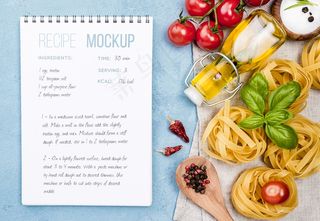 RECIPE MOCKUP
INGREDIENTS:
1 egg room temp.
1/2 teaspoon salt
1 cup all-purpose flour
2 tablespoons water
TIME: 30 min
SERVING: 3
KCAL: kcal
1 - In a medium sized bowl, combine flour and
salt. Make a well in the flour add the slightly
beaten egg, and mix. Mixture should form a stiff
dough. If needed, stir in 1 to 2 tablespoons water.
2 - On a lightly floured surface, knead dough for
about 3 to 4 minutes. With a pasta machine or
by hand roll dough out to desired thinness. Use
machine or knife to cut into strips of desired
width.